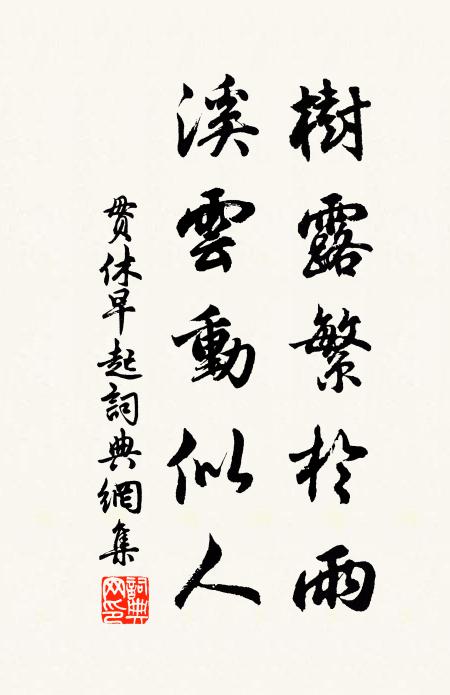 樹露繁於雨
溪雲動似人
貫休早起詞典網集
詞典
网印